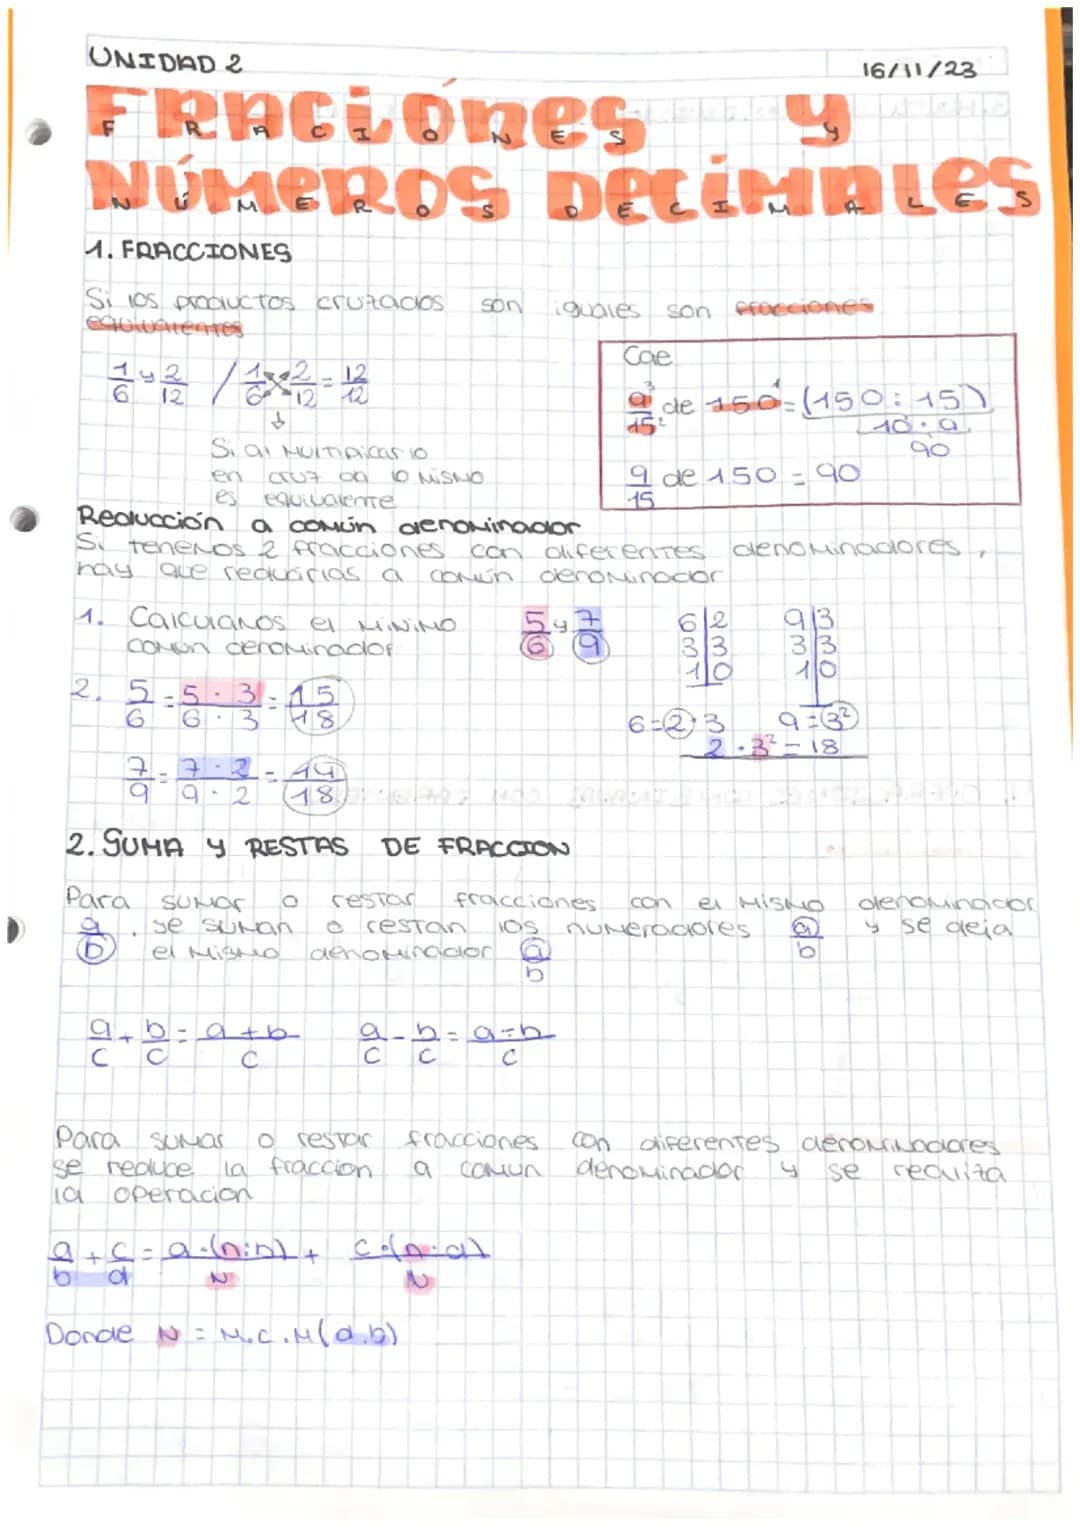 UNIDAD 2
16/11/23
FRACIONES Y
NÚMEROS DECIMALES
1. FRACCIONES
Si los productos cruzados son iguales son fracciones
equivalentes
1/6 y 2/12 / 1/6 x 2/12 = 12/12
Si al multiplicar lo
en cruz da lo mismo
es equivalente
Cae
9/15 de 150 = (150 : 15)
10 · 9
90
9/15 de 150 = 90
Reducción a común denominador
Si tenemos 2 fracciones con diferentes denominadores,
hay que reducirlas a común denominador
1. Calculamos el mínimo
común denominador
5/6 y 7/9
6|2 9|3
3|3 3|3
1|0 1|0
2. 5/6 = 5 · 3 / 6 · 3 = 15/18
6 = 2 · 3 9 = 3²
2 · 3² = 18
7/9 = 7 · 2 / 9 · 2 = 14/18
2. SUMA Y RESTAS DE FRACCION
Para sumar o restar fracciones con el mismo denominador
a/b, se suman o restan los numeradores a/b y se deja
el mismo denominador a/b
a/c + b/c = a+b/c a/c - b/c = a-b/c
Para sumar o restar fracciones con diferentes denominadores
se reduce la fraccion a comun denominador y se realiza
la operacion
a/b + c/d = a·(n:b)/N + c·(n:d)/N
Donde N = M.C.M(d.b)